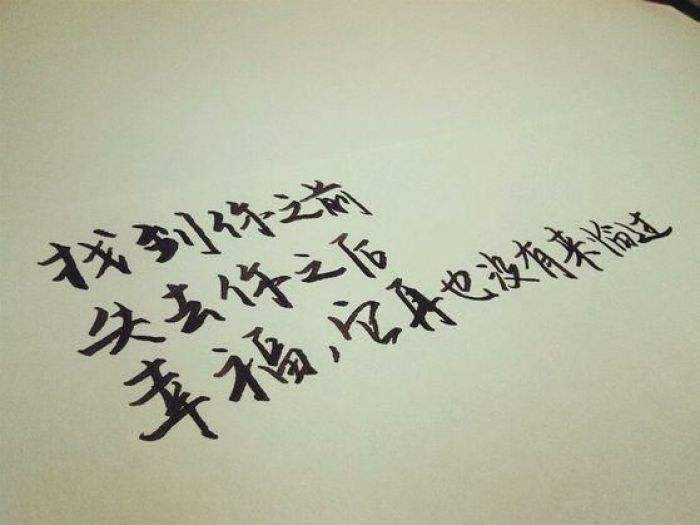 找到你之前
失去你之后
幸福,它再也没有来临过